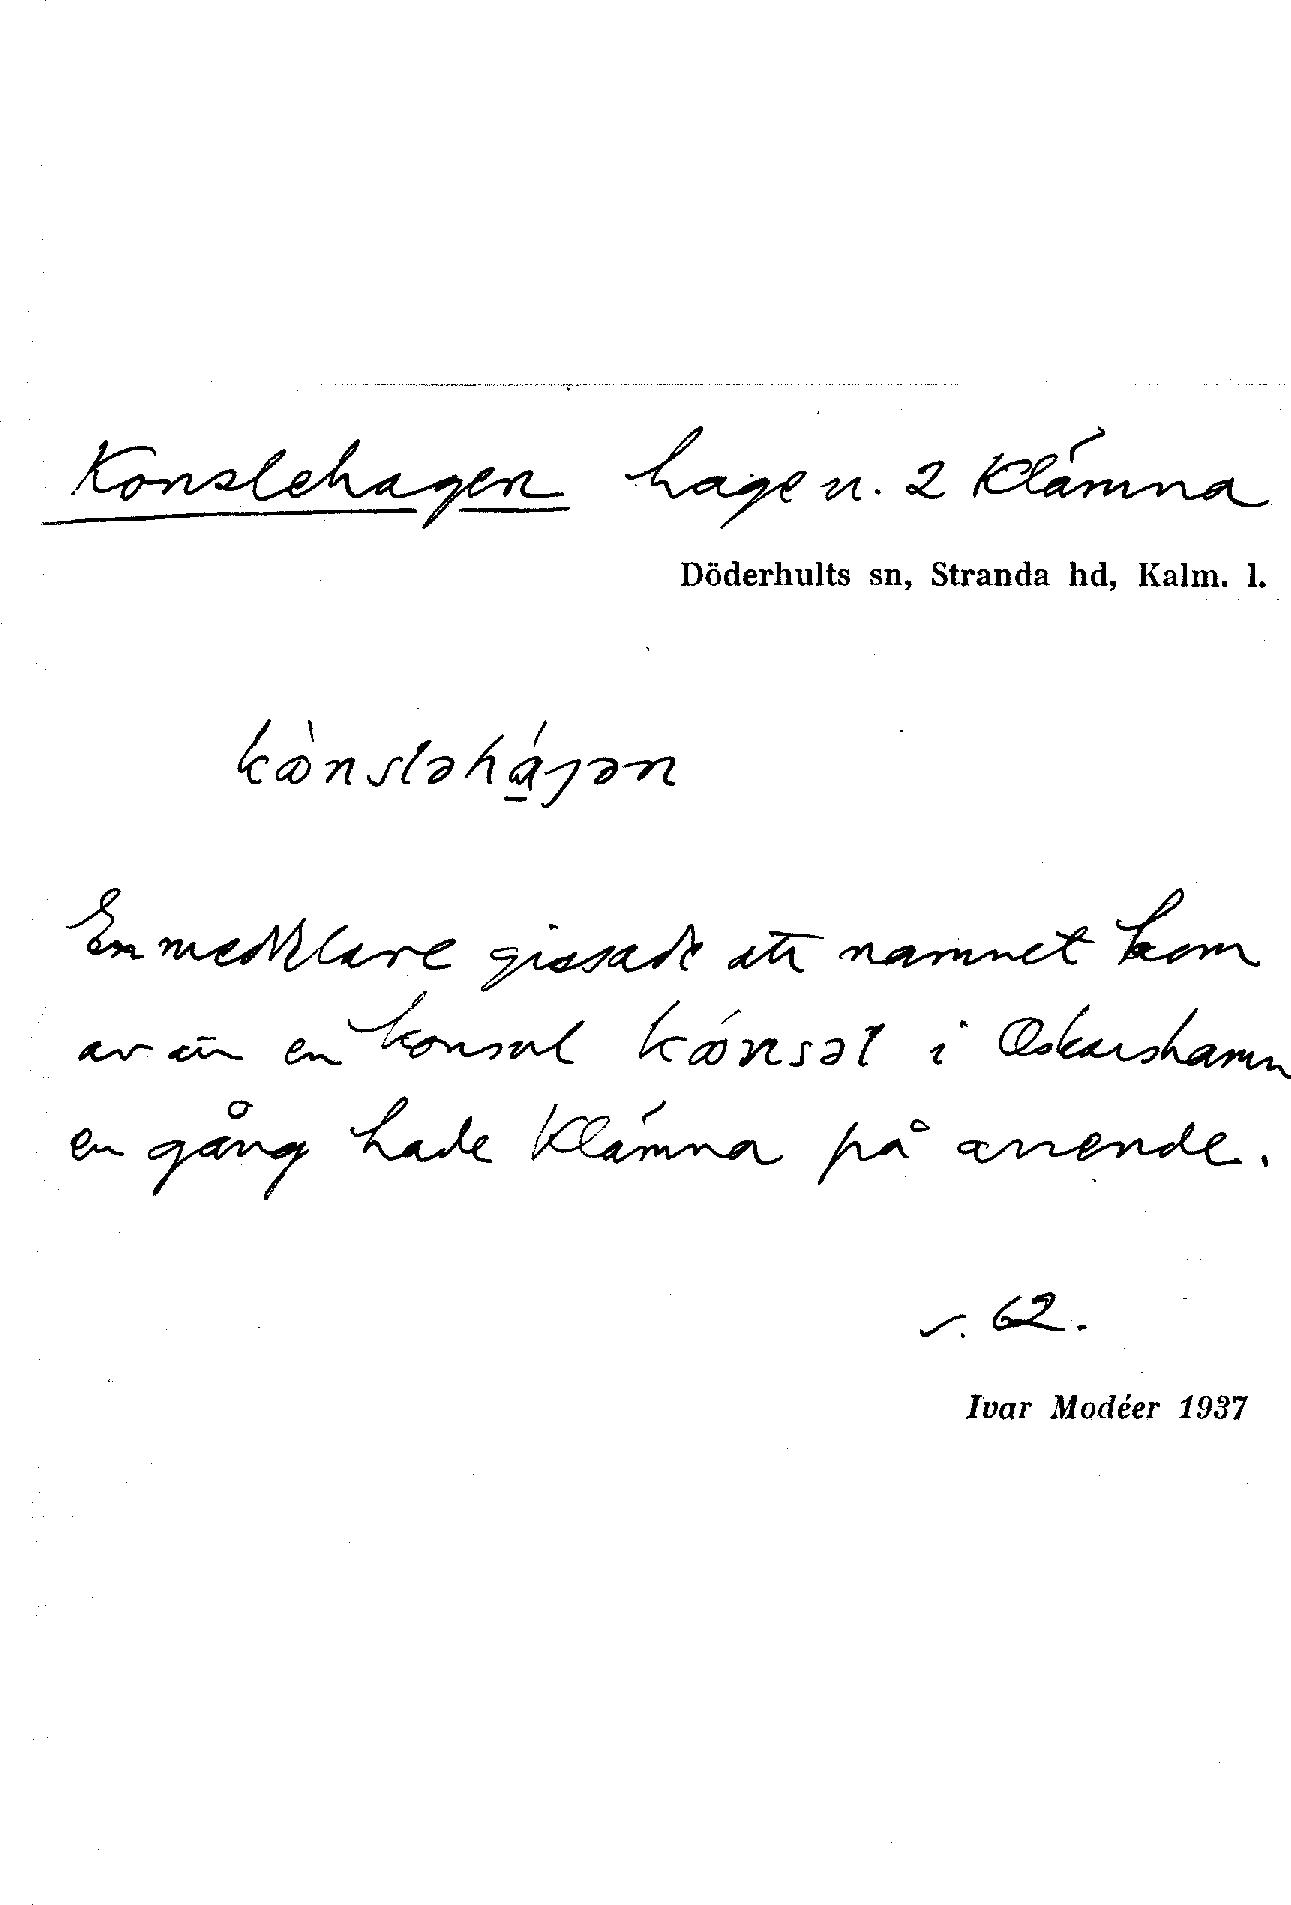 Konslehagen hage n. 2 Klämna
Döderhults sn, Stranda hd, Kalm. l.
kònsləhá̠jən
En meddelare gissade att namnet kom
av att en konsul kónsəl i Oskarshamn
en gång hade Klämna på arrende.
s. 62.
Ivar Modéer 1937